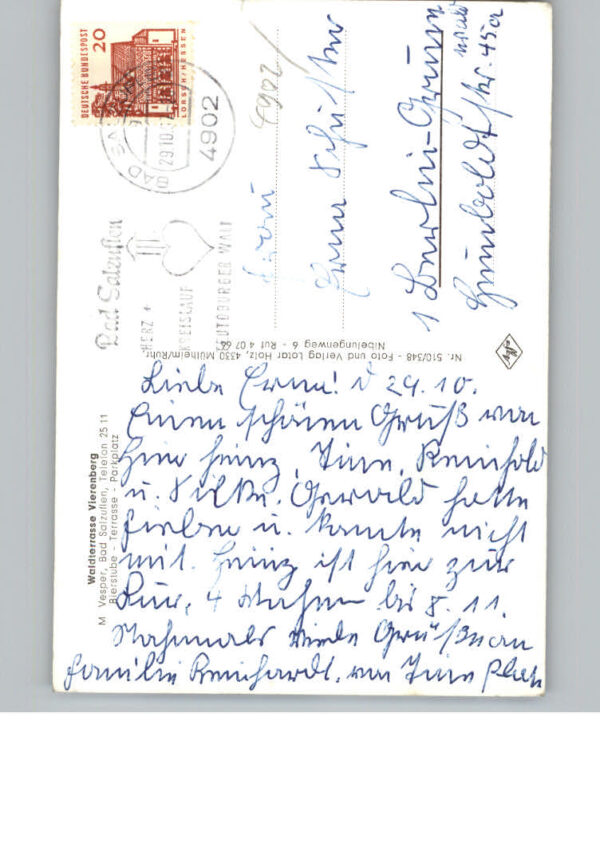 DEUTSCHE BUNDESPOST
20
LORSCH/HESSEN
BAD
29.10.
4902
4902/
Bad Salzuflen
HERZ +
KREISLAUF
TEUTOBURGER WALD
Frau
Erna Schuster
1 Berlin-Grune
wald
Humboldtstr. 45a
Nr. 510/349 - Foto und Verlag Lotar Holz, 4330 Mülheim/Ruhr
Nibelungenweg 6 - Ruf 4 07 68
Agfa
Waldterrasse Vierenberg
M. Vesper, Bad Salzuflen, Telefon 25 11
Bierstube - Terrasse - Parkplatz
Liebe Erna! d 29. 10.
Einen schönen Gruß von
hier Heinz, Tine, Reinhold
u. Silke. Gerald hatte
Fieber u. konnte nicht
mit. Heinz ist hier zur
Kur, 4 Wochen bis 8. 11.
Nochmals viele Grüße an
Familie Reinhardt. von Tine